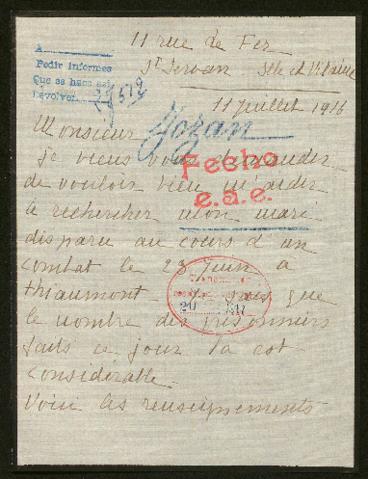 11 rue de Fer
St Servan Ille et Vilaine
A
Pedir informes
Que se hace así
Devolver
11 juillet 1916
Monsieur
Jozan
Je viens vous demander
Fecho
de vouloir bien m'aider
e.a.e.
à rechercher mon mari
disparu au cours d'un
combat le 23 juin à
Thiaumont. Je sais que
le nombre des prisonniers
faits ce jour là est
considérable.
Voici les renseignements